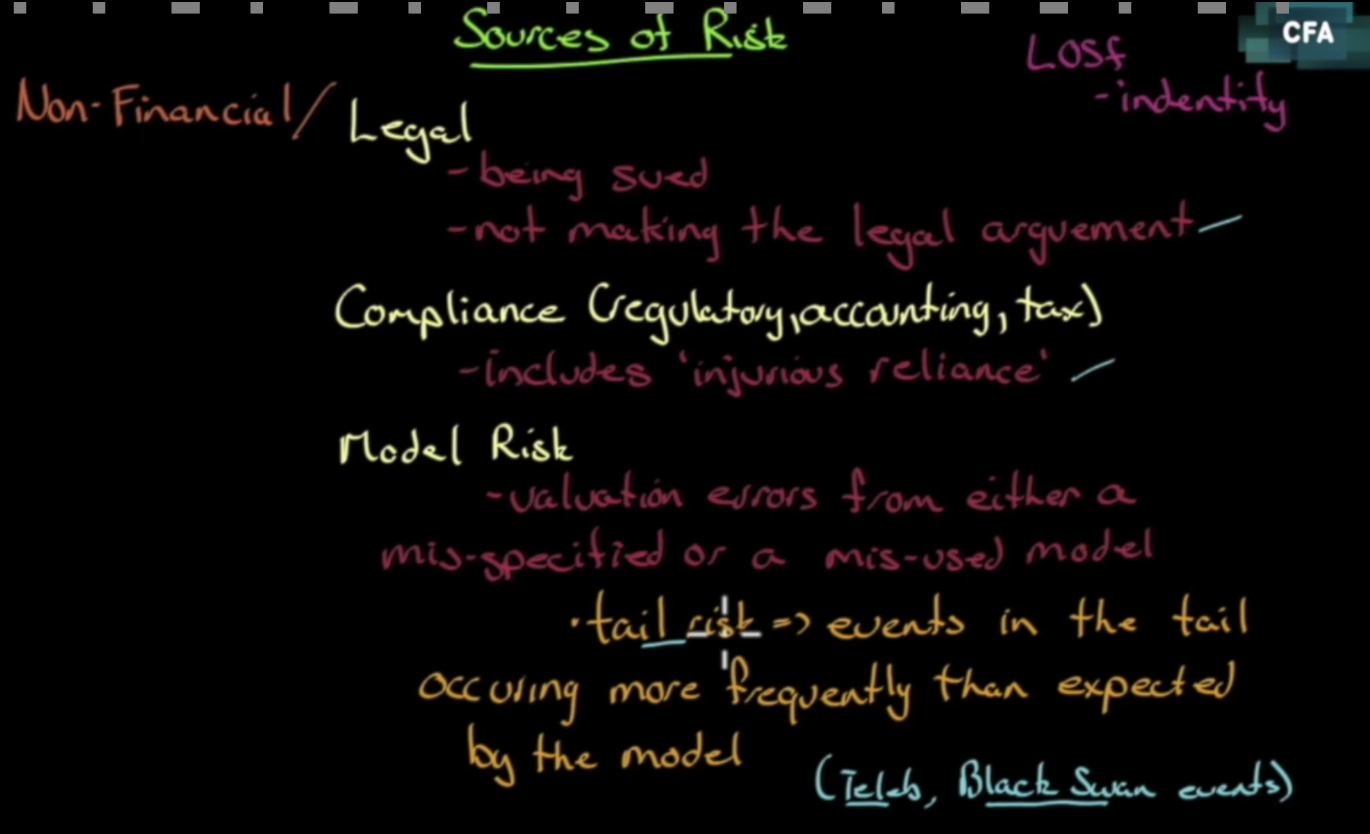 Sources of Risk
CFA
LOS f
- indentify
Non-Financial/
Legal
- being sued
- not making the legal arguement
Compliance (regulatory, accounting, tax)
- includes 'injurious reliance'
Model Risk
- valuation errors from either a
mis-specified or a mis-used model
· tail risk => events in the tail
occuring more frequently than expected
by the model
(Teleb, Black Swan events)